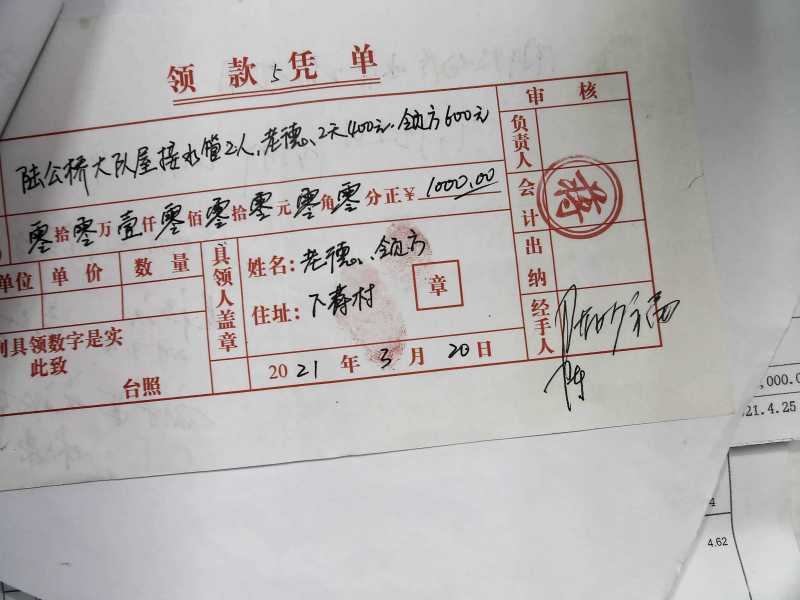 领款凭单
5
陆公桥大队屋接水管2人,老德、2天400元、领方600元
零拾零万壹仟零佰零拾零元零角零分正¥1000.00
单位 单价 数量
具领人盖章
姓名:老德、领方
住址:下蒋村
章
列具领数字是实
此致
台照
2021年3月20日
审核
负责人
会计
蒋
出纳
经手人
,000.0
21.4.25
4
4.62